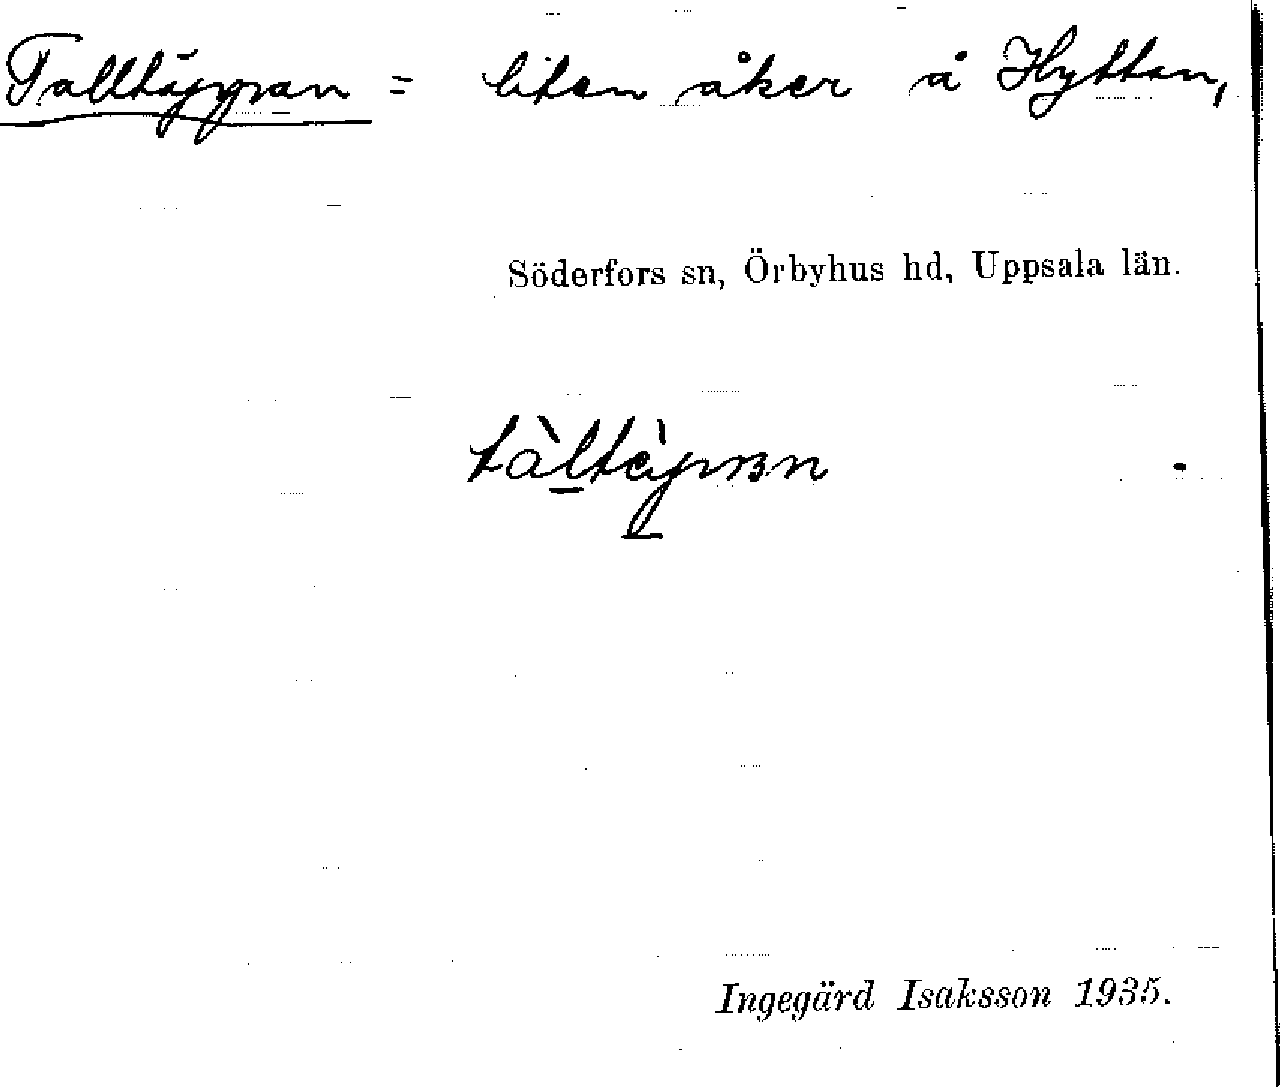 Talltäppan = liten åker å Hyttan,
Söderfors sn, Örbyhus hd, Uppsala län.
Ingegärd Isaksson 1935.